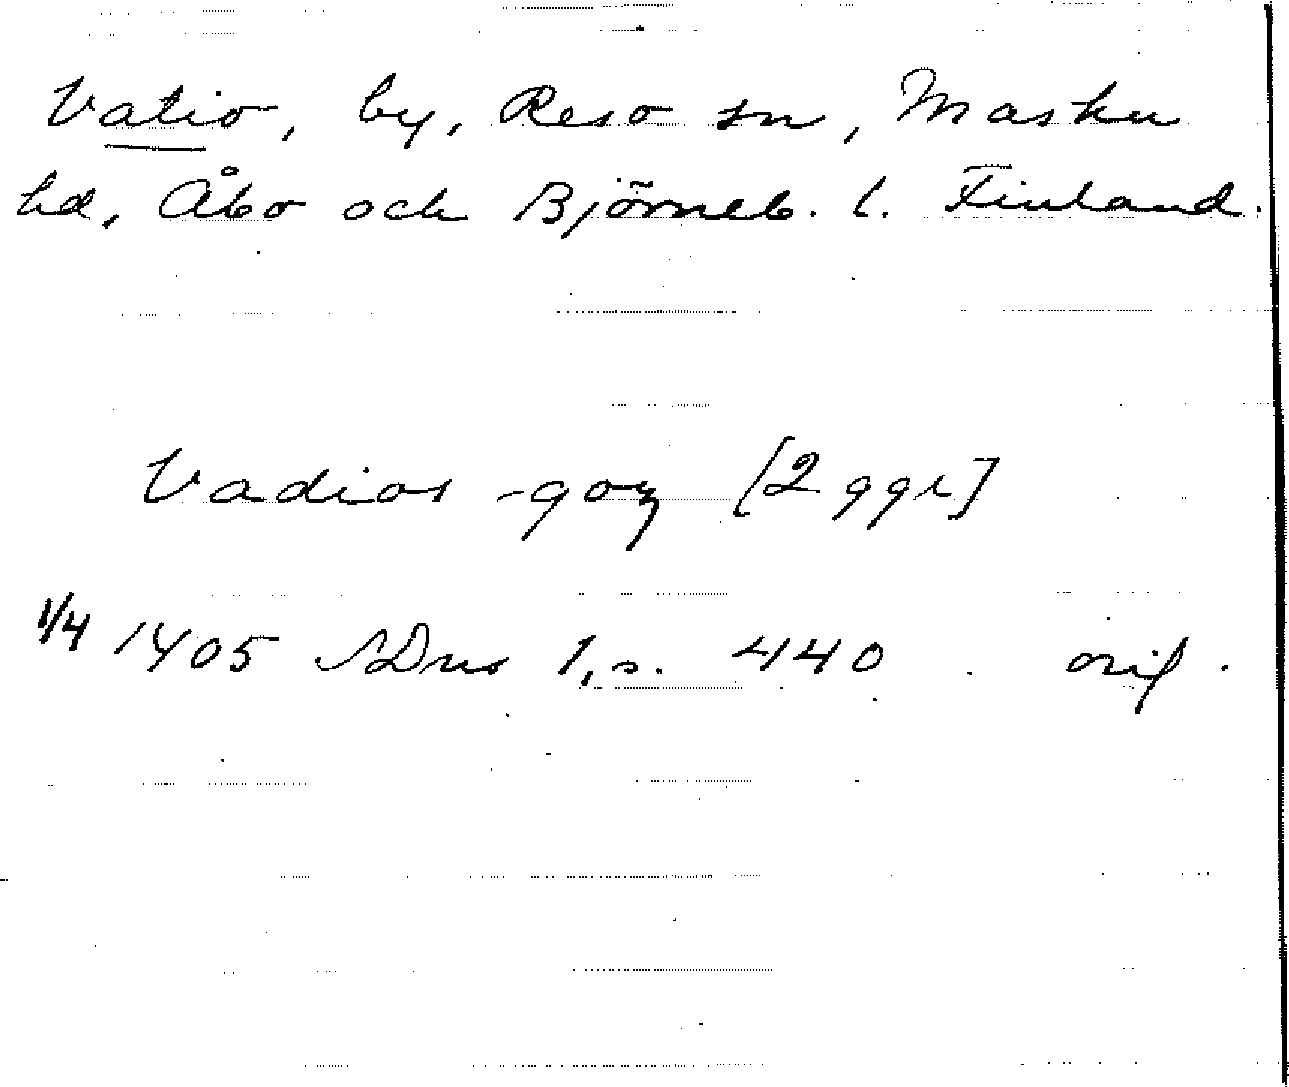 Vatio, by, Reso sn, Masku
hd, Åbo och Björneb. l. Finland.
Vadios -goz [2 ggr]
1/4 1405 SDns 1, s. 440 orig.